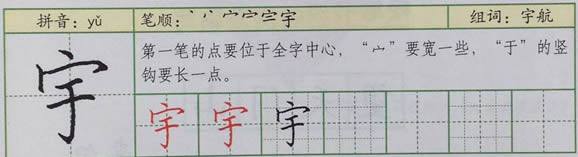 拼音：yǔ 笔顺：丶丷宀宀宇宇 组词：宇航
宇
第一笔的点要位于全字中心，“宀”要宽一些，“于”的竖
钩要长一点。
宇 宇 宇